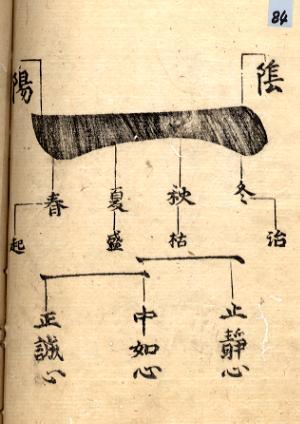 84
陰 陽
冬 秋 夏 春
治 枯 盛 起
止靜心 中如心 正誠心